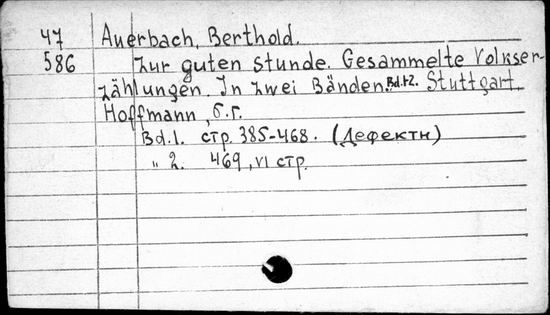 47 Auerbach, Berthold.
586 Zur guten Stunde. Gesammelte Volkser-
zählungen. In zwei Bänden. Bd.1-2. Stuttgart,
Hoffmann, б.г.
Bd.1. стр. 385-468. (Дефектн)
" 2. 469, VI стр.